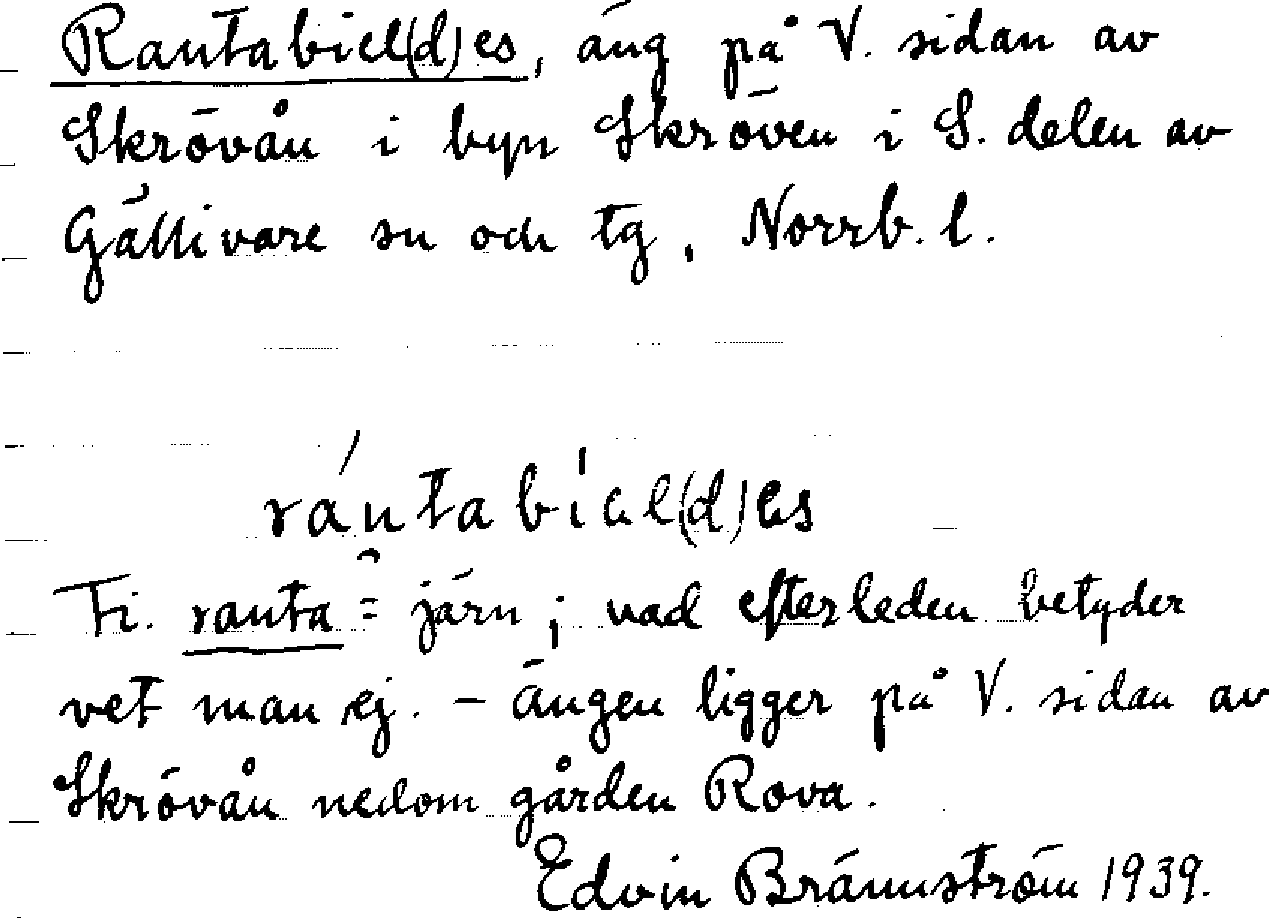 Rautabiel(d)es, äng på V. sidan av
Skrövån i byn Skröven i S. delen av
Gällivare sn och tg, Norrb. l.
ráutabiel(d)es
Fi. rauta = järn; vad efterleden betyder
vet man ej. – Ängen ligger på V. sidan av
Skrövån nedom gården Rova.
Edvin Brännström 1939.